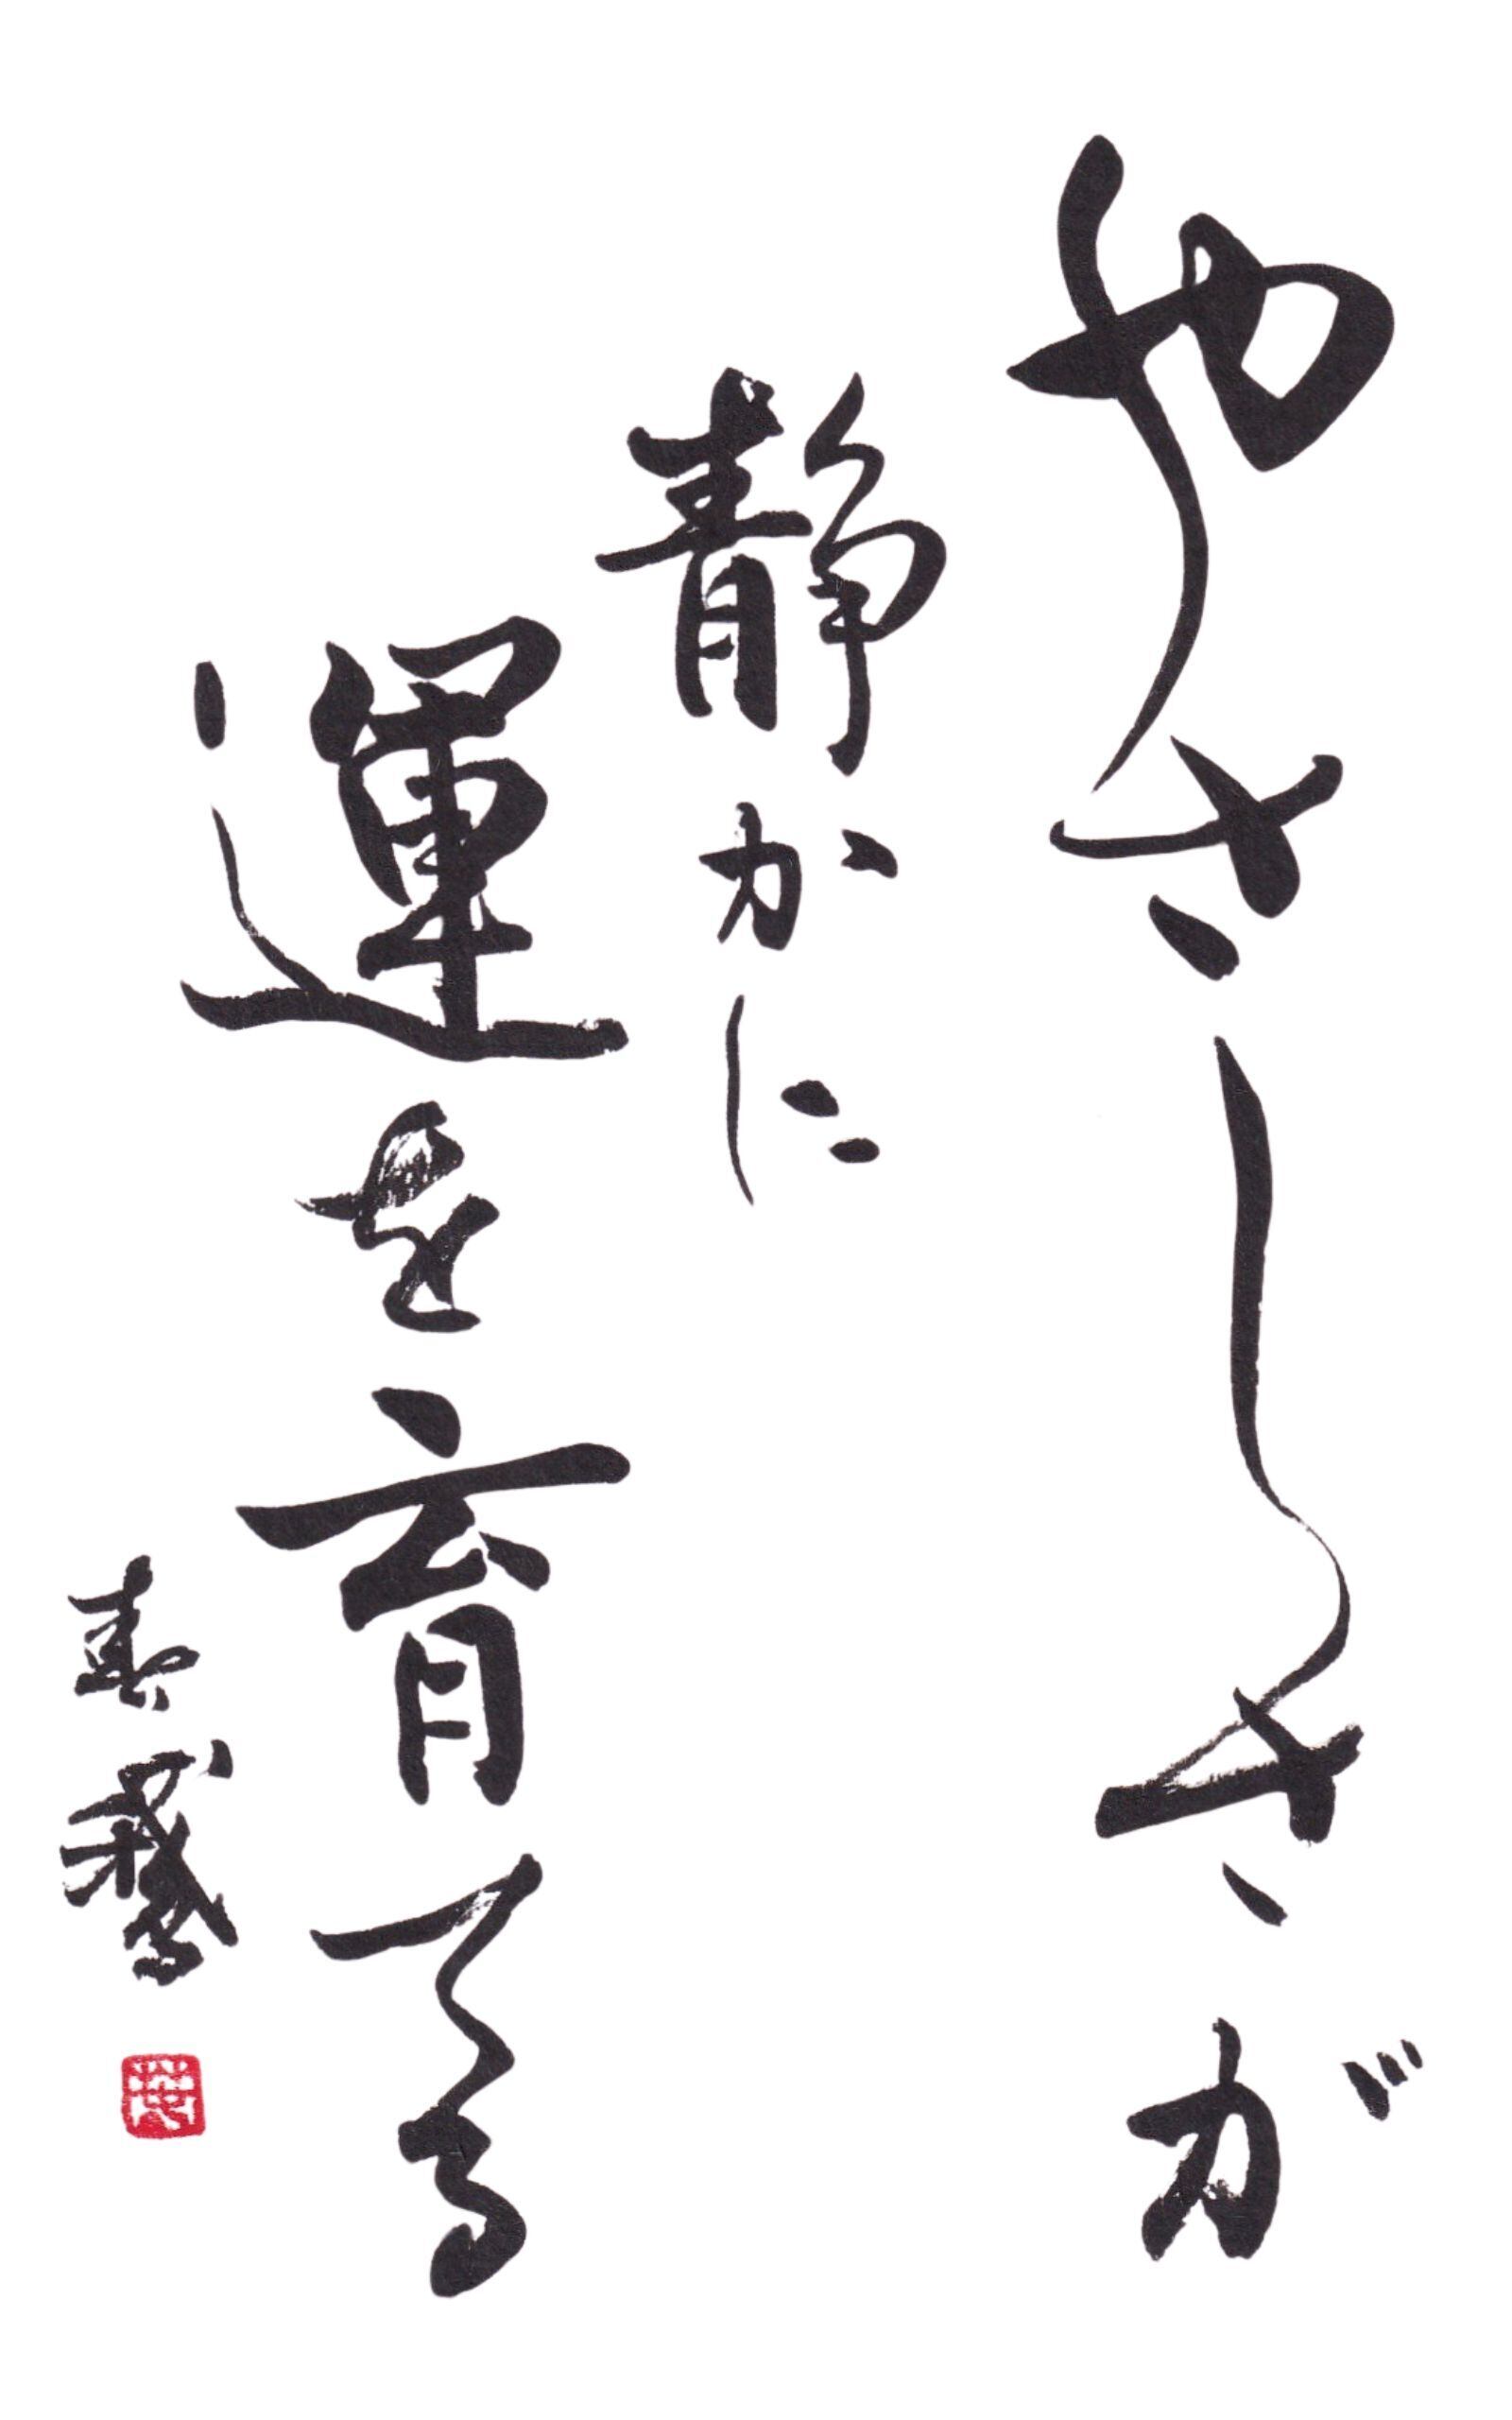 やさしさが
静かに
運を育てる
春葉